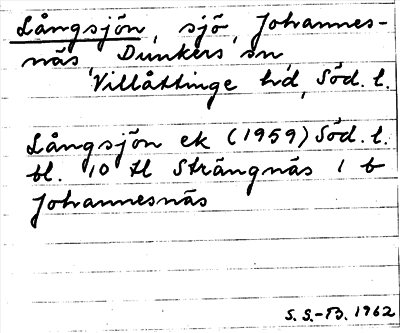 Långsjön, sjö, Johannes-
näs, Dunkers sn
Villåttinge hd, Söd. l.
Långsjön ek (1959) Söd. l.
bl. 10 tl Strängnäs 1 b
Johannesnäs
S. S.-B. 1962